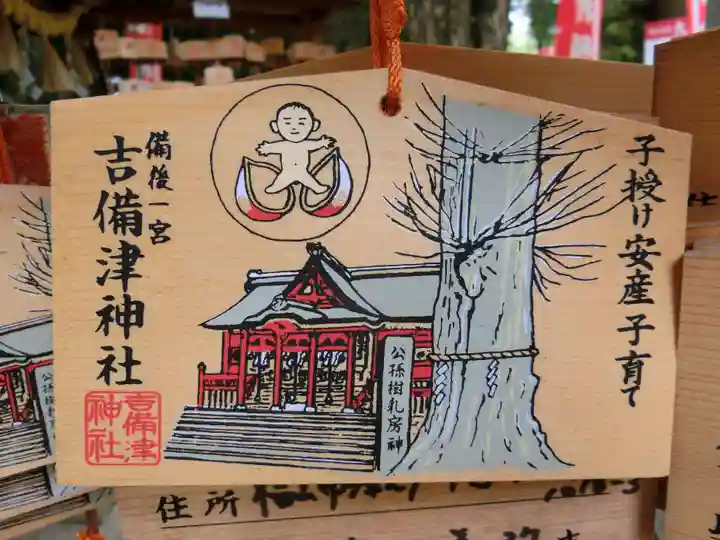 子授け安産子育て
備後一宮
吉備津神社
公孫樹乳房神
吉備津
神社
住所